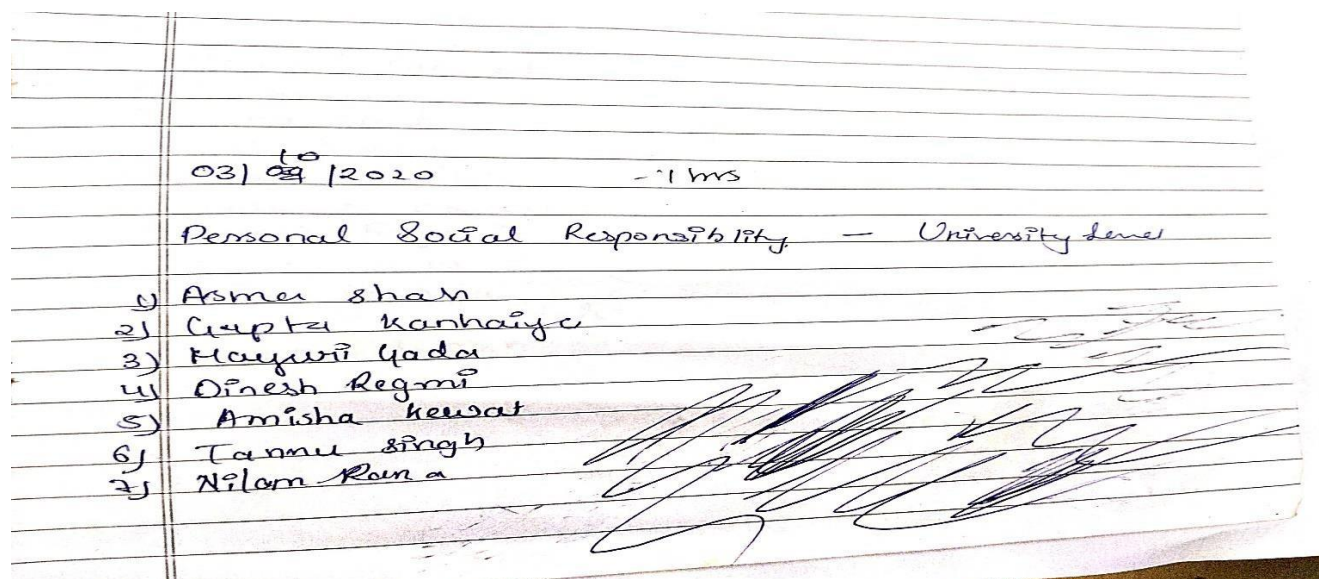 03/10/2020 - 1 hrs
Personal Social Responsiblity - University Level
1) Asma Shah
2) Gupta Kanhaiya
3) Mayuri Gada
4) Dinesh Regmi
5) Amisha Kewat
6) Tannu Singh
7) Nilam Rana